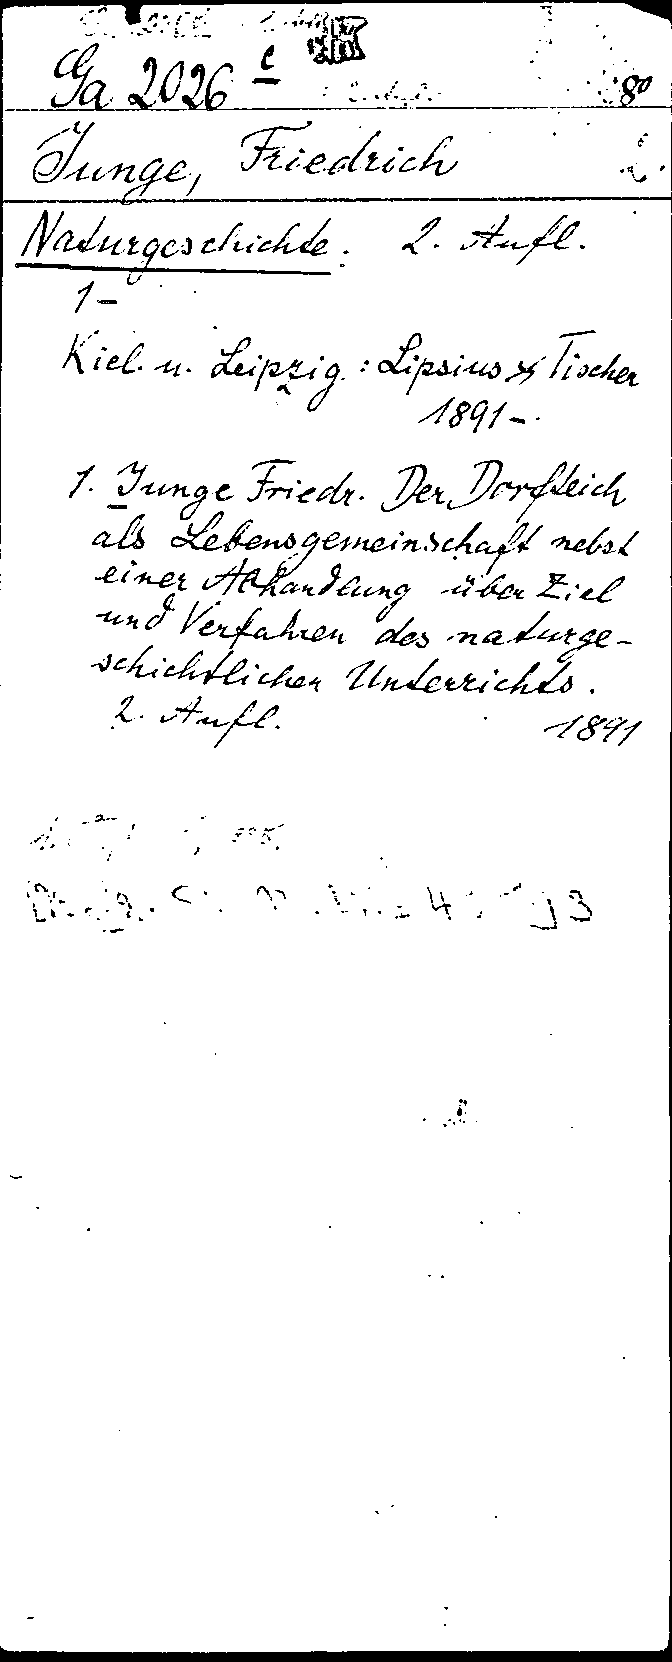 Ga 2026 c 8°
Junge, Friedrich 2.
Naturgeschichte. 2. Aufl.
1-
Kiel. u. Leipzig : Lipsius & Tischer
1891-.
1. Junge Friedr. Der Dorfteich
als Lebensgemeinschaft nebst
einer Abhandlung über Ziel
und Verfahren des naturge-
schichtlichen Unterrichts.
2. Aufl. 1891